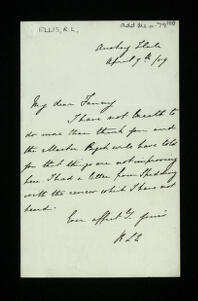 ELLIS, R. L.
Add Ms a
Anstey Hall
April 9th /59
My dear Fanny
I have not breath to
do more than thank you and
the Master. Paget will have told
you that things are not improving
here. I had a letter from Spedding
with the review which I have not
heard.
Ever affectly yours
R L E